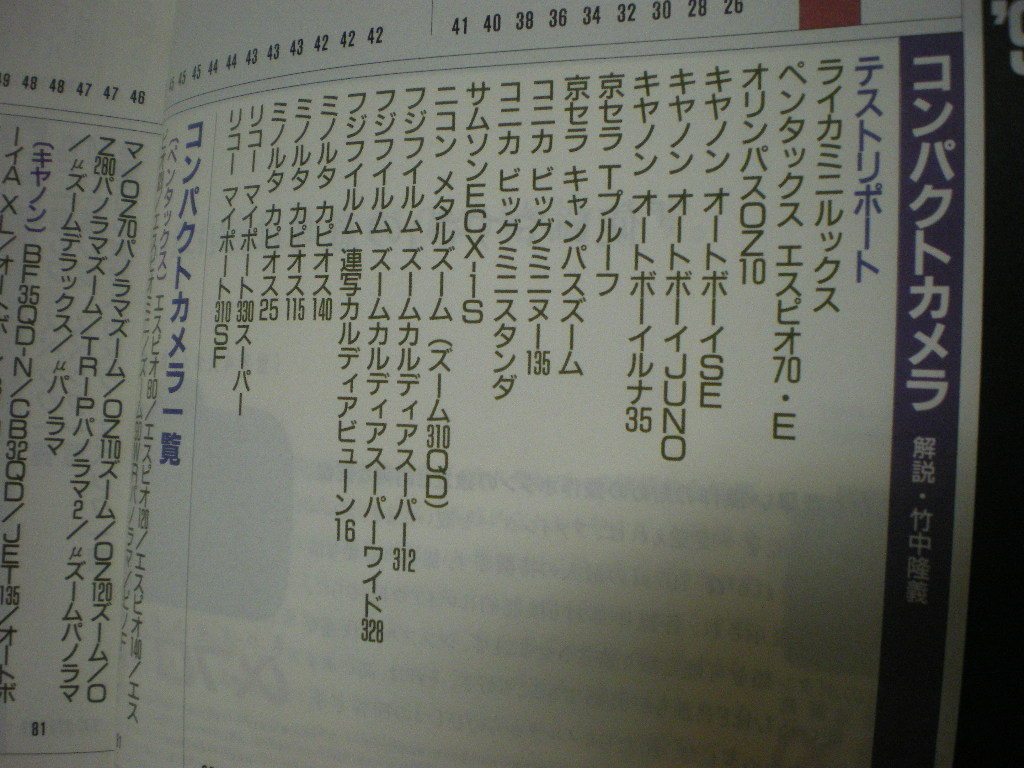 41 40 38 36 34 32 30 28 26
45 45 44 44 43 43 43 42 42 42
コンパクトカメラ 解説・竹中隆義
テストリポート
ライカミニルックス
ペンタックス エスピオ70・E
オリンパスOZ10
キヤノン オートボーイSE
キヤノン オートボーイJUNO
キヤノン オートボーイルナ35
京セラ Tプルーフ
京セラ キャンパスズーム
コニカ ビッグミニヌー135
コニカ ビッグミニスタンダ
サムソンECX-1S
ニコン メタルズーム(ズーム310QD)
フジフイルム ズームカルディアスーパー312
フジフイルム ズームカルディアスーパーワイド328
フジフイルム 連写カルディアビューン16
ミノルタ カピオス140
ミノルタ カピオス115
ミノルタ カピオス25
リコー マイポート330スーパー
リコー マイポート310SF
コンパクトカメラ一覧
(ペンタックス) エスピオ80/エスピオ120/エスピオ140/エス
49 48 48 47 47 46
マ/OZ70パノラマズーム/OZ110ズーム/OZ120ズーム/O
Z280パノラマズーム/TRIPパノラマ2/μズームパノラマ
/μズームデラックス/μパノラマ
(キヤノン) BF35QD-N/CB32QD/JET135/オートボ
81